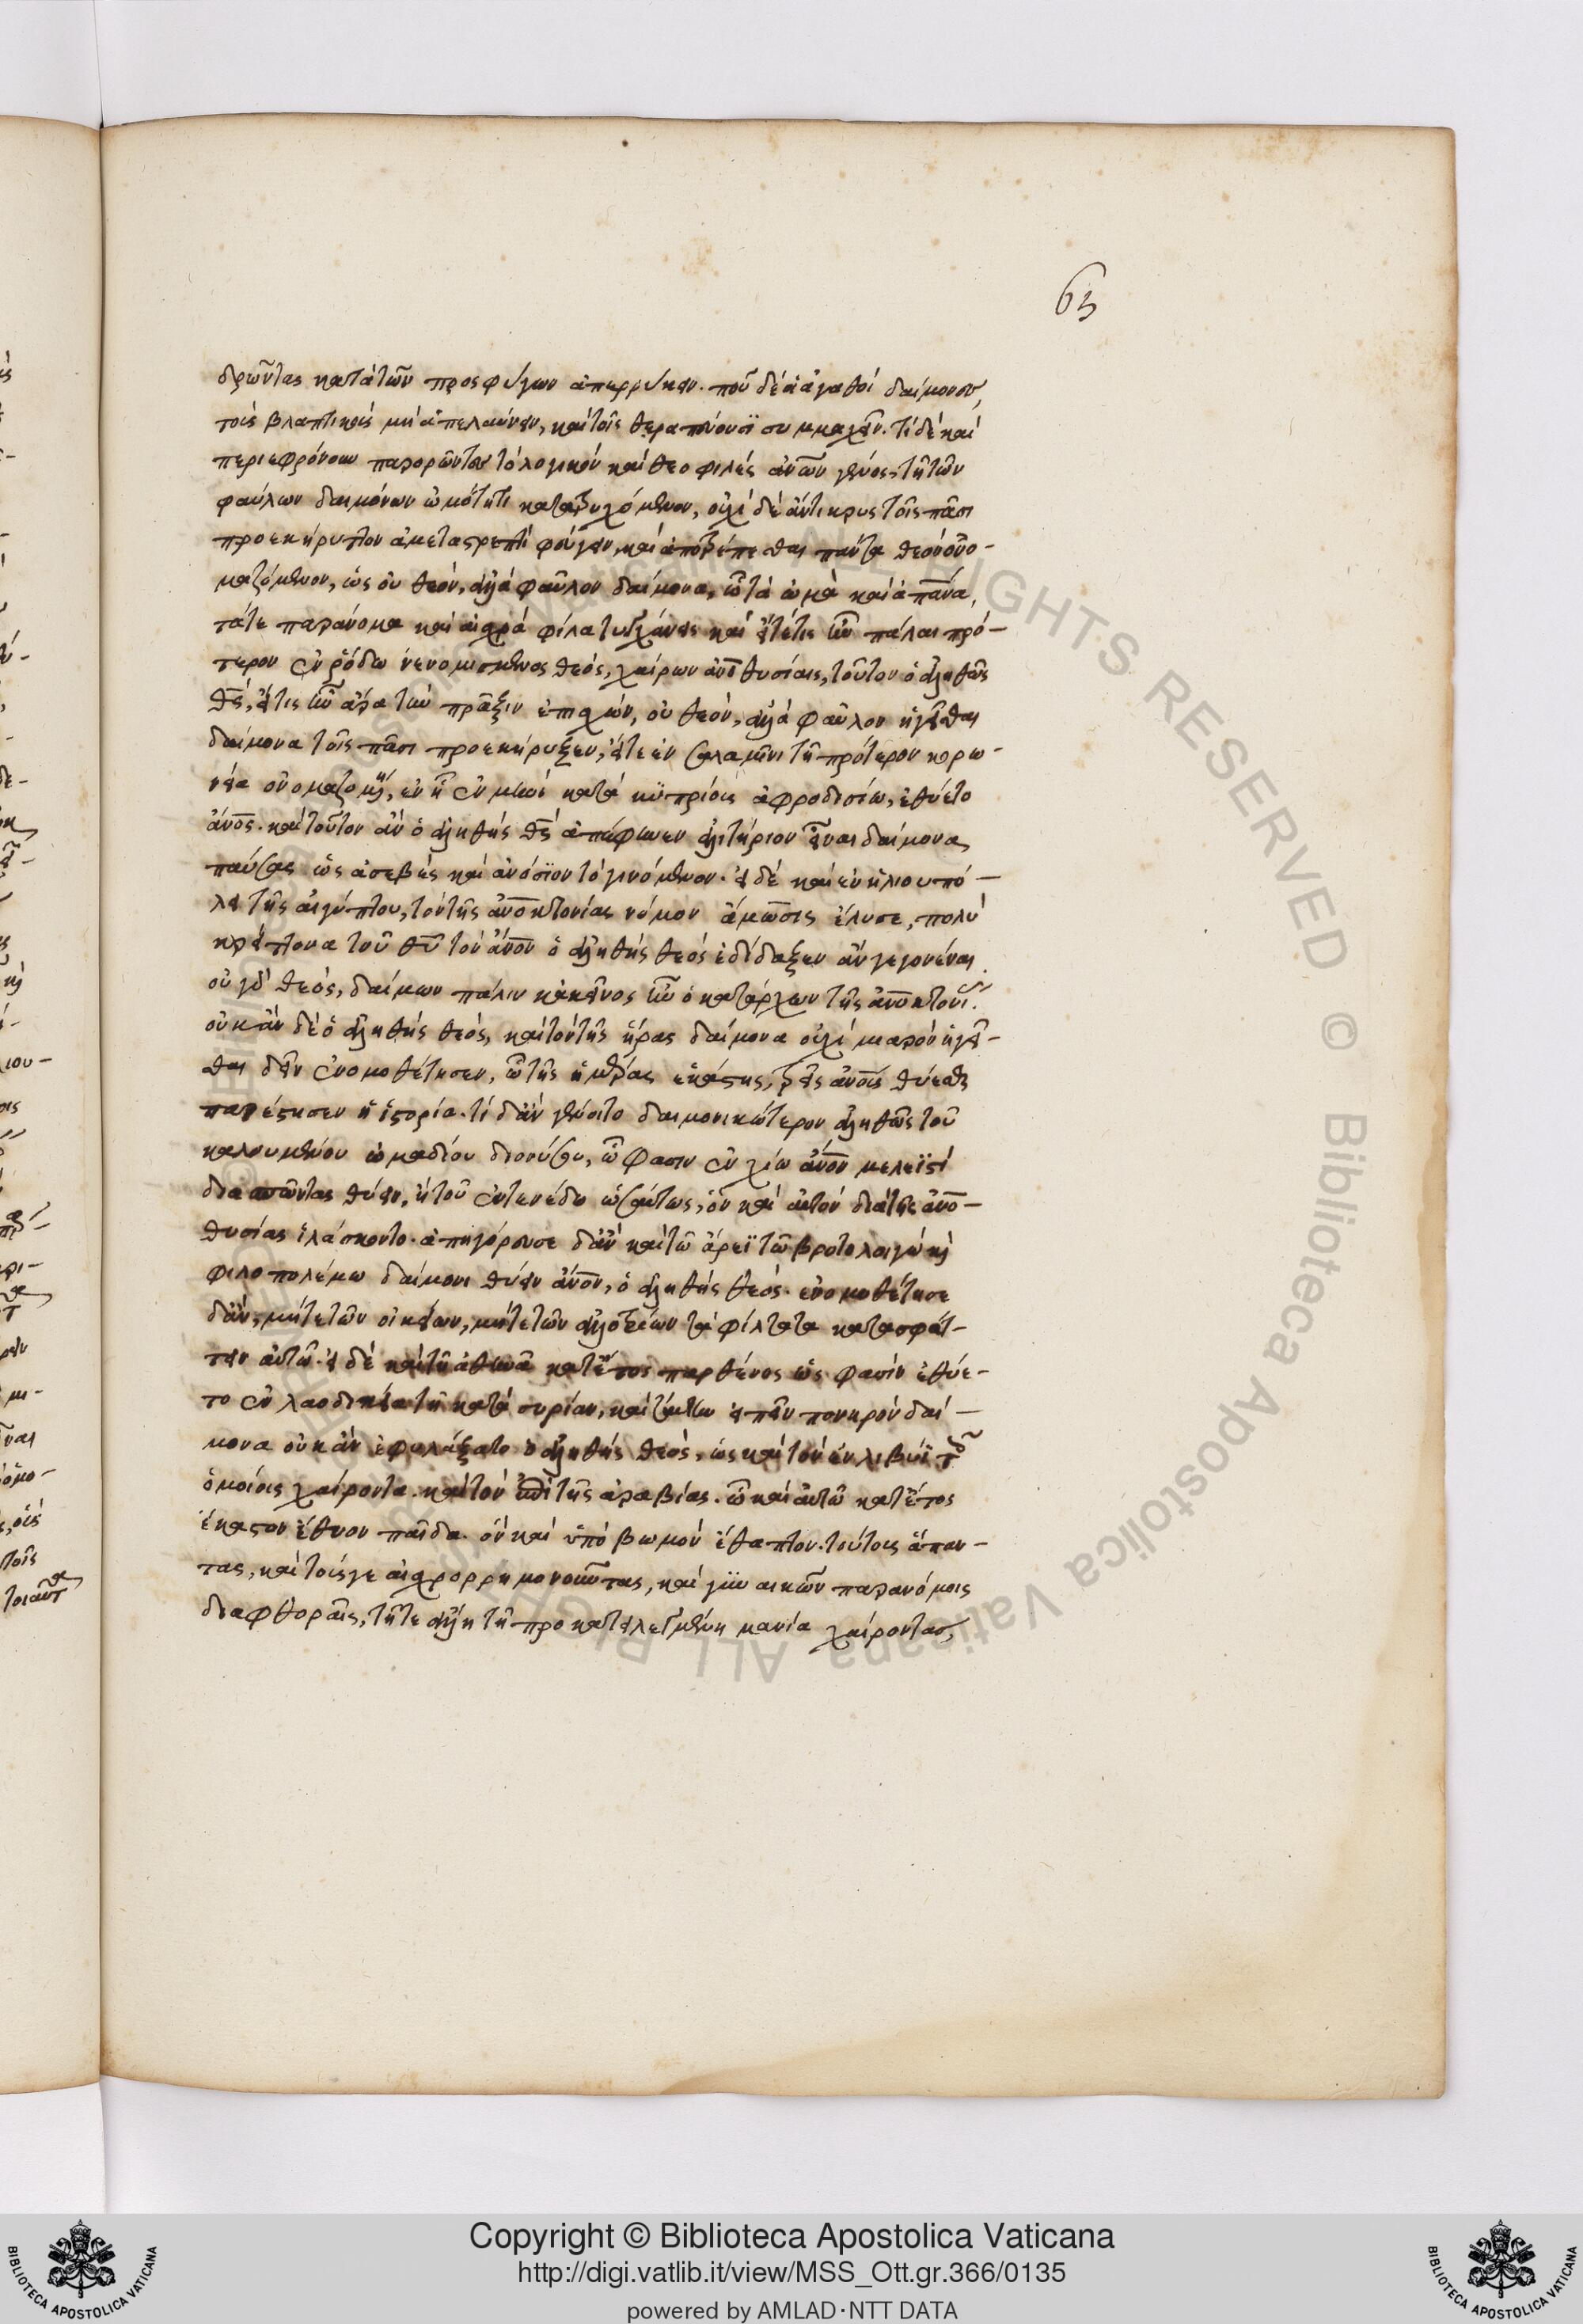 63
δρῶντας κατὰ τῶν προσφύγων ἀπερρύκειν. ποῦ δὲ οἱ ἀγαθοὶ δαίμονες,
τοὺς βλαπτικοὺς μὴ ἀπελαύνειν, καὶ τοῖς θεραπεύουσϊ συμμαχεῖν. τί δὲ καὶ
περιεφρόνουν παρορῶντες τὸ λογικὸν καὶ θεοφιλὲς ἀνων γένος, τῇ τῶν
φαύλων δαιμόνων ὠμότητι κατατρυχόμενον, οὐχὶ δὲ ἄντικρυς τοῖς πᾶσι
προεκήρυττον ἀμεταστρεπτὶ φεύγειν, καὶ ἀποτρέπεσθαι πάντα θεὸν ὀνο-
μαζόμενον, ὡς οὐ θεὸν, ἀλλὰ φαῦλον δαίμονα, ᾧ τὰ ὠμὰ καὶ ἀπανα,
τά τε παράνομα καὶ αἰσχρὰ φίλα τυγχάνει καὶ εἴτέτις ἦν πάλαι πρό-
τερον ἐν ῥόδω νενομισμένος θεὸς, χαίρων ανο θυσίαις, τοῦτον ὁ ἀληθῶς
θς, εἴ τις ἦν ἄρα τὴν πρᾶξιν ἐπισχὼν, οὐ θεὸν, ἀλλὰ φαῦλον ἡγεῖσθαι
δαίμονα τοῖς πᾶσι προεκήρυξεν, εἴτε ἐν σαλαμῖνι τῇ πρότερον κορω-
νεία ὀνομαζομένη, ἐν ᾗ ἐν μηνὶ κατὰ κϋπρίους ἀφροδισίω, ἐθύετο
ἄνος. καὶ τοῦτον ἂν ὁ ἀληθὴς θς ἀπέφηνεν ἀλιτήριον εἶναι δαίμονα,
παύσας ὡς ἀσεβὲς καὶ ἀνόσϊον τὸ γινόμενον. εἰ δὲ καὶ ἐν ἡλιουπό-
λει τῆς αἰγύπτου, τὸν τῆς ἀνοκτονίας νόμον ἄμωσις ἔλυσε, πολὺ
κρείττονα τοῦ θυ τὸν ἄνον ὁ ἀληθὴς θεὸς ἐδίδαξεν ἂν γεγονέναι.
οὐ γὰρ θεὸς, δαίμων πάλιν κἀκεῖνος ἦν ὁ κατάρχων τῆς ἀνοκτονί.
οὐκ ἂν δὲ ὁ ἀληθὴς θεὸς, καὶ τὸν τῆς ἥρας δαίμονα οὐχὶ μιαρὸν ἡγεῖ-
σθαι δεῖν ἐνομοθέτησεν, ᾧ τῆς ἡμέρας ἑκάστης, τρεῖς ἀνους θύεσθαι
παρέστησεν ἡ ἱστορία. τί δ' ἂν γένοιτο δαιμονικώτερον ἀληθῶς τοῦ
καλουμένου ὠμαδίου διονύσου, ᾧ φασιν ἐν χίω ἄνον μελεϊστὶ
διασπῶντας θύειν, ἢ τοῦ ἐν τενέδω ὡσαύτως, ὃν καὶ αὐτὸν διὰ τῆς ἀνο-
θυσίας ἱλάσκοντο. ἀπηγόρευσε δ' ἂν καὶ τῶ ἄρεϊ τῶ βροτολοιγῶ κὶ
φιλοπολέμω δαίμονι θύειν ἄνον, ὁ ἀληθὴς θεὸς. ἐνομοθέτησε
δ' ἂν, μήτε τῶν οἰκείων, μήτε τῶν ἀλλοτρίων τὰ φίλτατα κατασφάτ-
τειν αὐτῶ. εἰ δὲ καὶ τῇ ἀθηνᾶ κατ' ἔτος παρθένος ὥς φασὶν ἐθύε-
το ἐν λαοδικεία τῇ κατὰ συρίαν, καὶ ταύτην εἰπεῖν πονηρὸν δαί-
μονα οὐκ ἂν ἐφυλάξατο ὁ ἀληθὴς θεὸς, ὡς καὶ τὸν ἐν λιβύη τοῖς
ὁμοίοις χαίροντα. καὶ τὸν ἐπὶ τῆς ἀραβίας. ᾧ καὶ αὐτῶ κατ' ἔτος
ἕκαστον ἔθυον παῖδα. ὃν καὶ ὑπὸ βωμὸν ἔθαπτον. τούτοις ἅπαν-
τας, καὶ τούς γε αἰσχρορρημονοῦντας, καὶ γυναικῶν παρανόμοις
διαφθοραῖς, τῇ τε ἄλλη τῇ προκατειλεγμένη μανία χαίροντας,